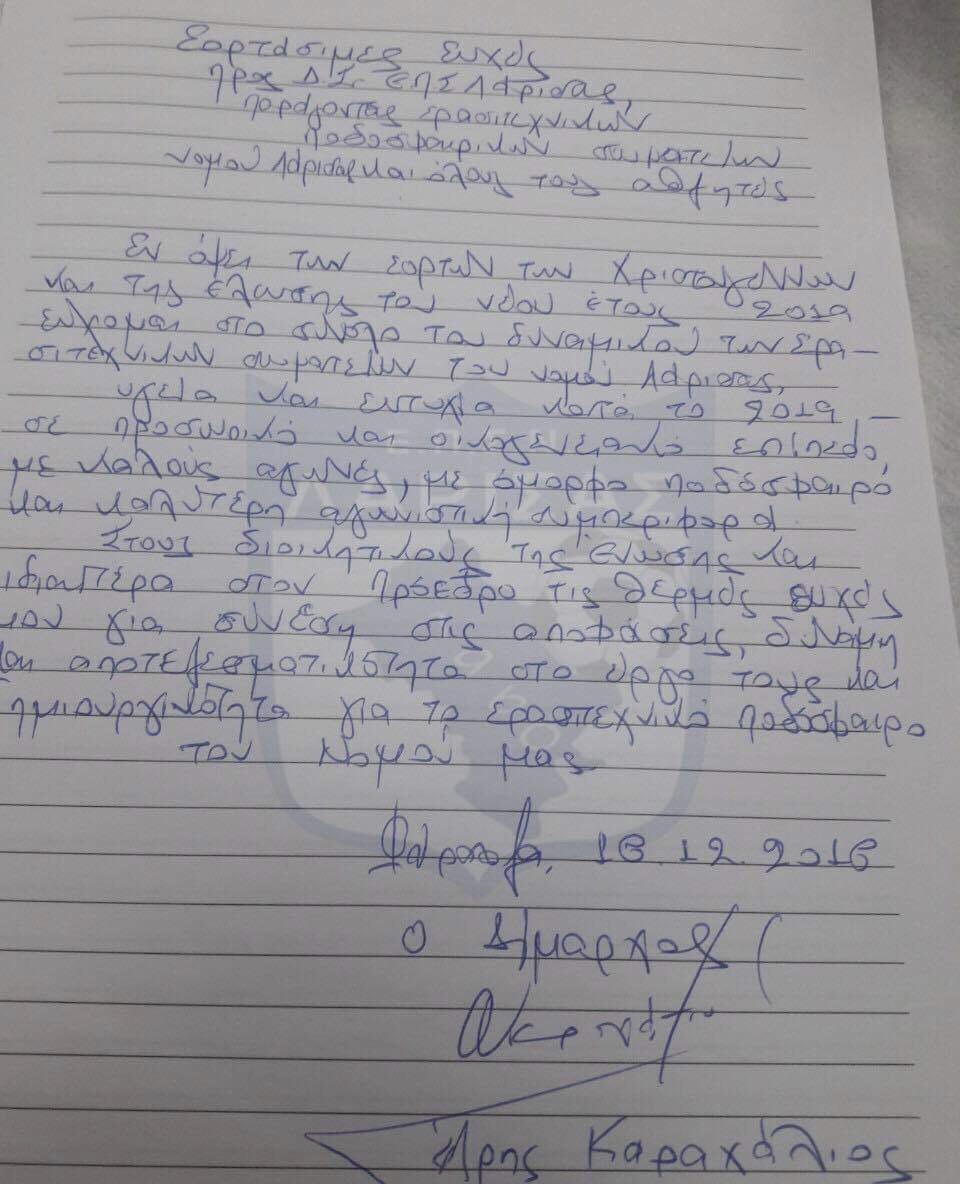 Εορτάσιμες ευχές
προς Δ.Σ. ΕΠΣ Λάρισας,
παράγοντας ερασιτεχνικών
ποδοσφαιρικών σωματείων
νομού Λάρισας και όλους τους αθλητάς
Εν όψει των εορτών των Χριστουγέννων
και της έλευσης του νέου έτους 2019
εύχομαι στο σύνολο του δυναμικού των ερα-
σιτεχνικών σωματείων του νομού Λάρισας,
υγεία και ευτυχία κατά το 2019,-
σε προσωπικό και οικογενειακό επίπεδο,
με καλούς αγώνες, με όμορφο ποδόσφαιρο
και καλύτερη αγωνιστική συμπεριφορά
Στους διοικητικούς της ένωσης και
ιδιαιτέρα στον πρόεδρο τις θερμές ευχές
μου για σύνεση στις αποφάσεις, δύναμη
και αποτελεσματικότητα στο έργο τους και
ημιουργικότητα για το ερασιτεχνικό ποδόσφαιρο
του Νομού μας
Φάρσαλα, 18.12.2018
Ο Δήμαρχος
Άρης Καραχάλιος
ΛΑΡΙΣΑΣ